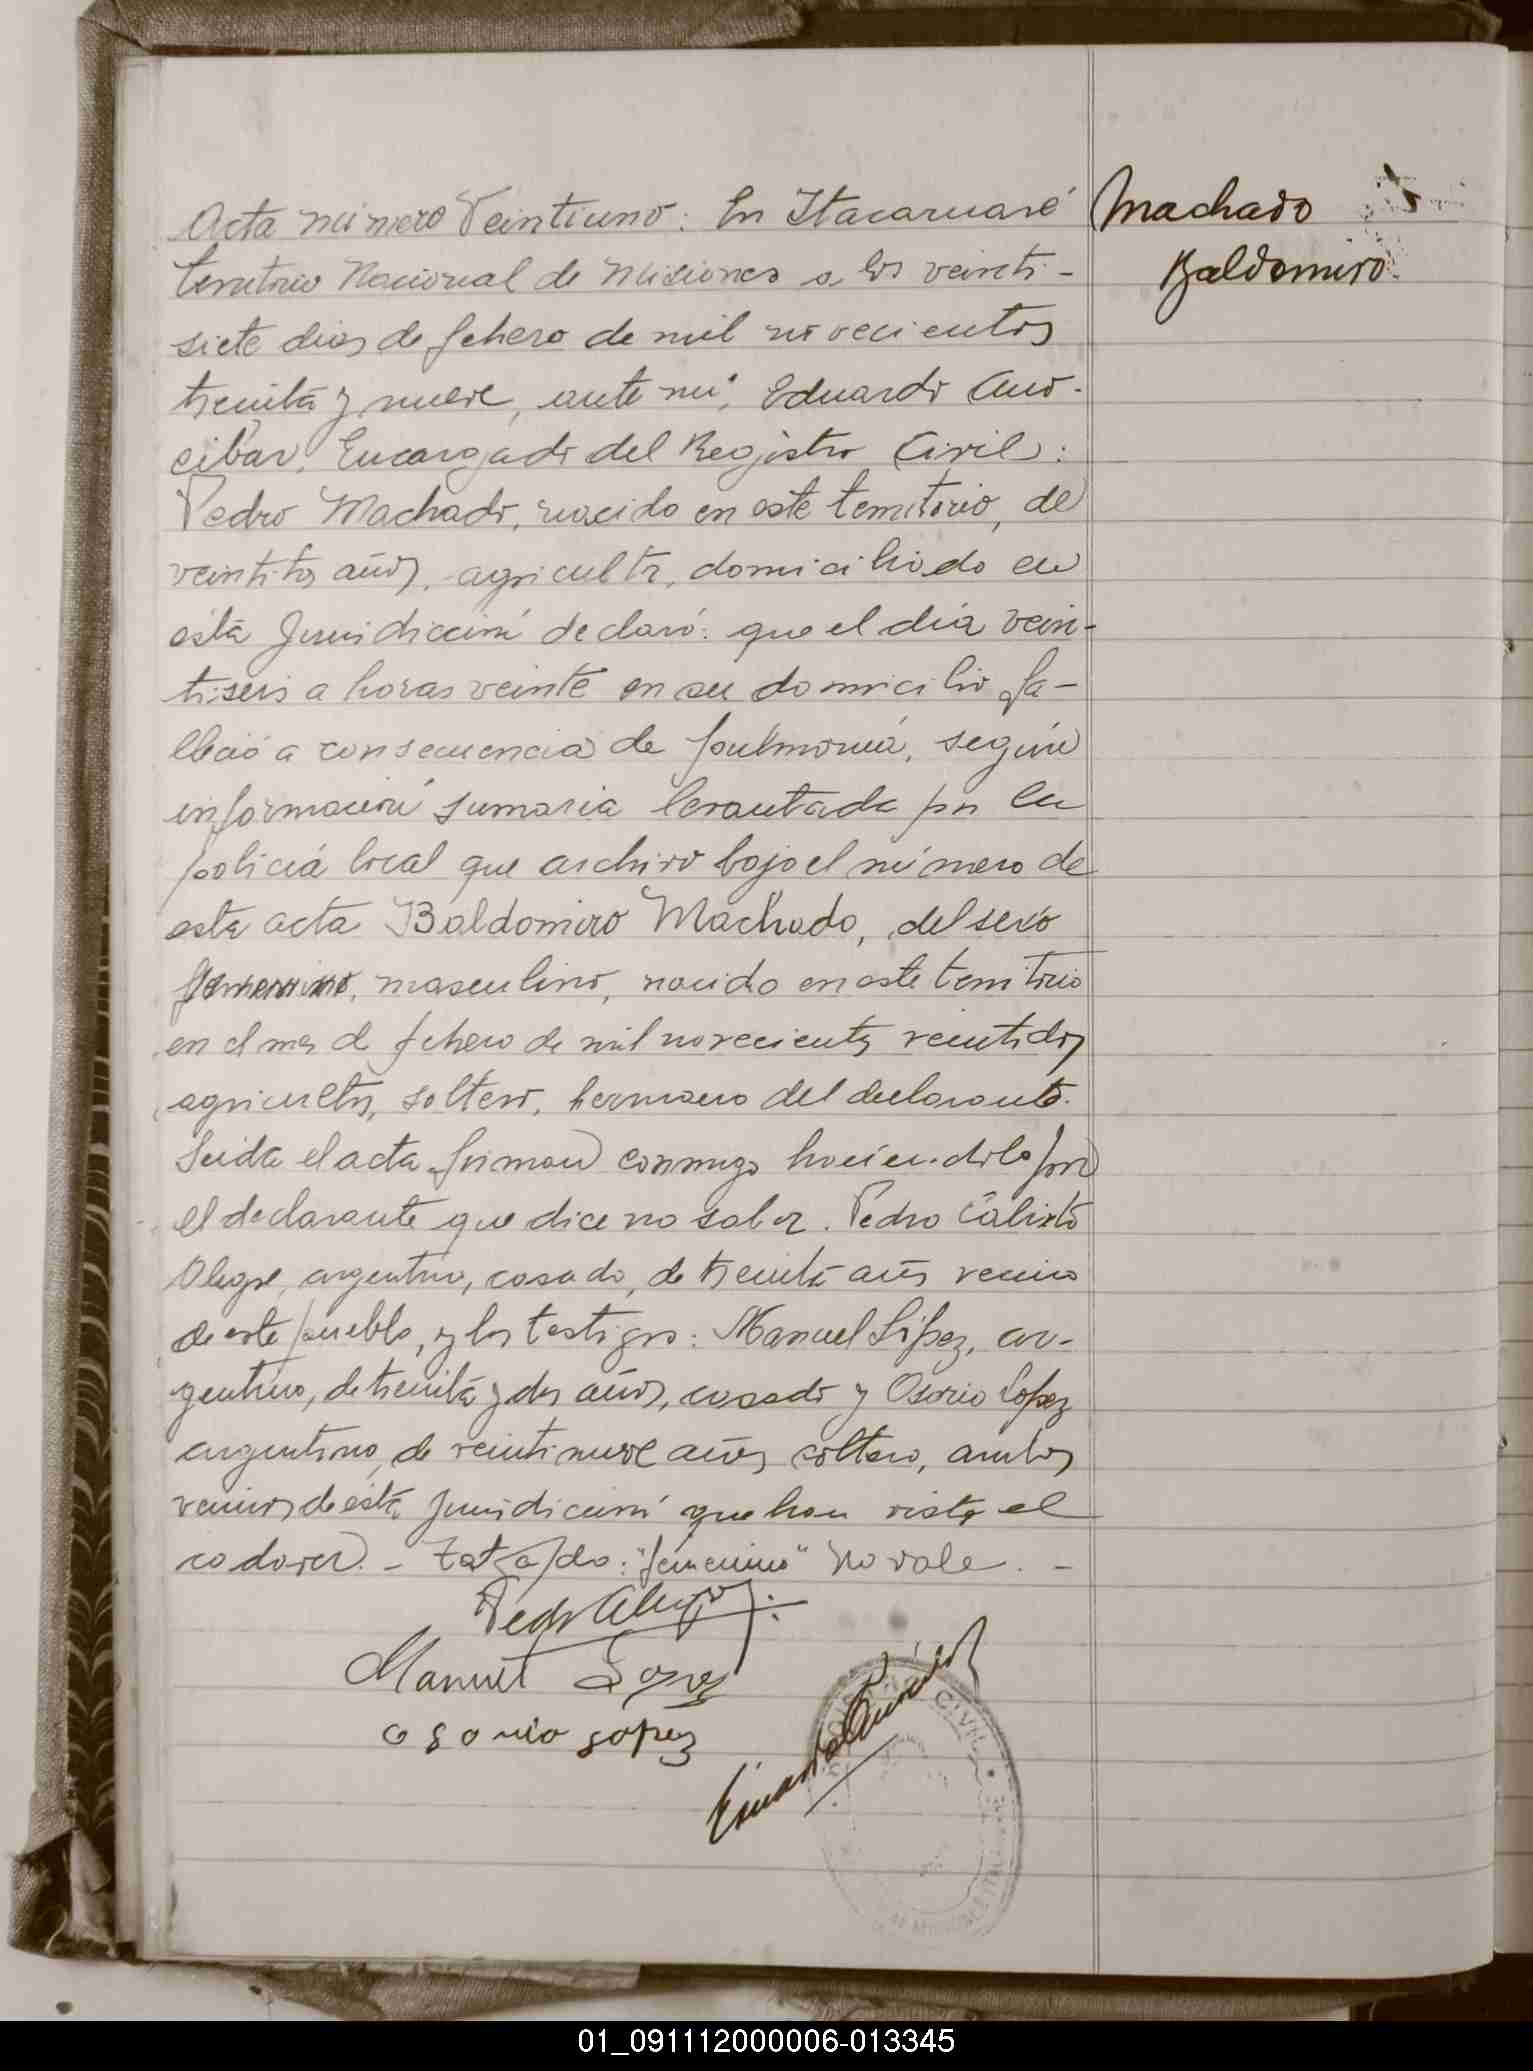 Acta número Veintiuno: En Itacaruaré
territorio Nacional de Misiones a los veinti-
siete dias de febrero de mil novecientos
treinta y nueve, ante mi, Eduardo
cibar, Encargado del Registro Civil:
Pedro Machado, nacido en este territorio, de
años, agricultor, domiciliado en
esta Jurisdicción declaró: que el día vein-
tiseis a horas veinte en su domicilio fa-
lleció a consecuencia de pulmonía, según
información sumaria levantada por la
policia local que archivo bajo el número de
esta acta Baldomiro Machado, del sexo
femenino, masculino, nacido en este territorio
en el mes de febrero de mil novecientos veintidos
agricultor, soltero, hermano del declarante.
Leida el acta firman conmigo haciendolo por
el declarante que dice no saber. Pedro Calixto
Alegre, argentino, casado, de treinta años vecino
de este pueblo, y los testigos: Manuel López, ar-
gentino, de treinta y dos años, casado y Osorio Lopez
argentino, de veintinueve años soltero, ambos
vecinos de esta Jurisdicción que han visto el
cadaver. - "femenino" No vale. -
Pedro Alegre
Manuel Lopez
osorio lopez
CIVIL
Machado
Baldomiro
01_091112000006-013345